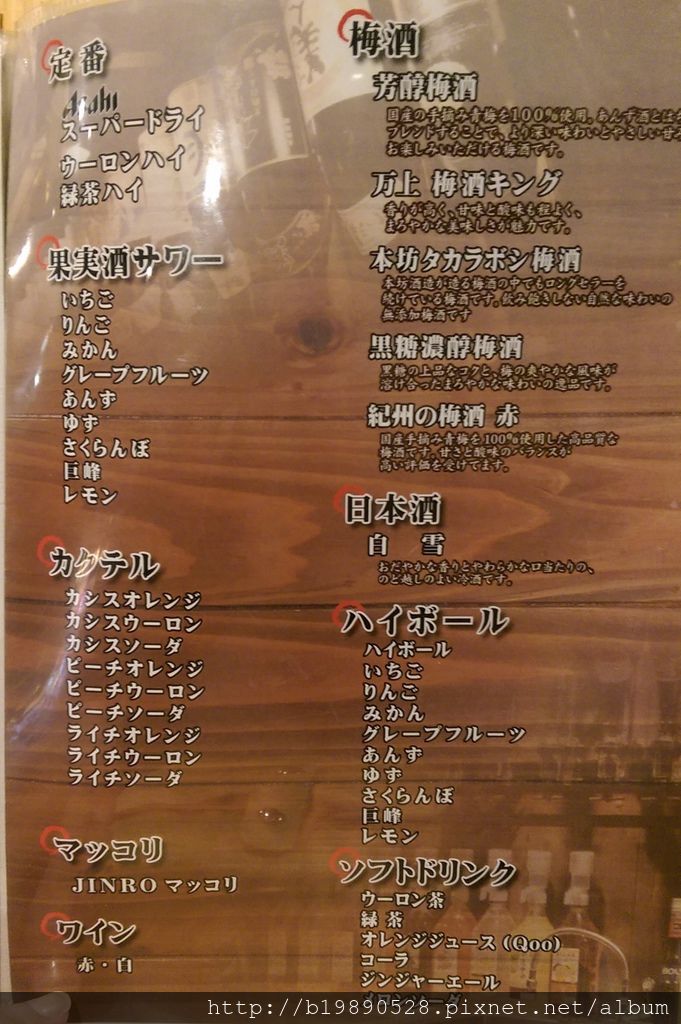 定番
Asahi
スーパードライ
ウーロンハイ
緑茶ハイ
果実酒サワー
いちご
りんご
みかん
グレープフルーツ
あんず
ゆず
さくらんぼ
巨峰
レモン
カクテル
カシスオレンジ
カシスウーロン
カシスソーダ
ピーチオレンジ
ピーチウーロン
ピーチソーダ
ライチオレンジ
ライチウーロン
ライチソーダ
マッコリ
JINRO マッコリ
ワイン
赤・白
梅酒
芳醇梅酒
国産の手摘み青梅を100%使用。あんず酒とは
ブレンドすることで、より深い味わいとやさしい甘み
お楽しみいただける梅酒です。
万上 梅酒キング
香りが高く、甘味と酸味も程よく、
まろやかな美味しさが魅力です。
本坊タカラボシ梅酒
本坊酒造が造る梅酒の中でもロングセラーを
続けている梅酒です。飲み飽きしない自然な味わいの
無添加梅酒です
黒糖濃醇梅酒
黒糖の上品なコクと、梅の爽やかな風味が
溶け合ったまろやかな味わいの逸品です。
紀州の梅酒 赤
国産手摘み青梅を100%使用した高品質な
梅酒です。甘さと酸味のバランスが
高い評価を受けてます。
日本酒
白 雪
おだやかな香りとやわらかな口当たりの、
のど越しのよい冷酒です。
ハイボール
ハイボール
いちご
りんご
みかん
グレープフルーツ
あんず
ゆず
さくらんぼ
巨峰
レモン
ソフトドリンク
ウーロン茶
緑茶
オレンジジュース (Qoo)
コーラ
ジンジャーエール
メロンソーダ
http://b19890528.pixnet.net/album